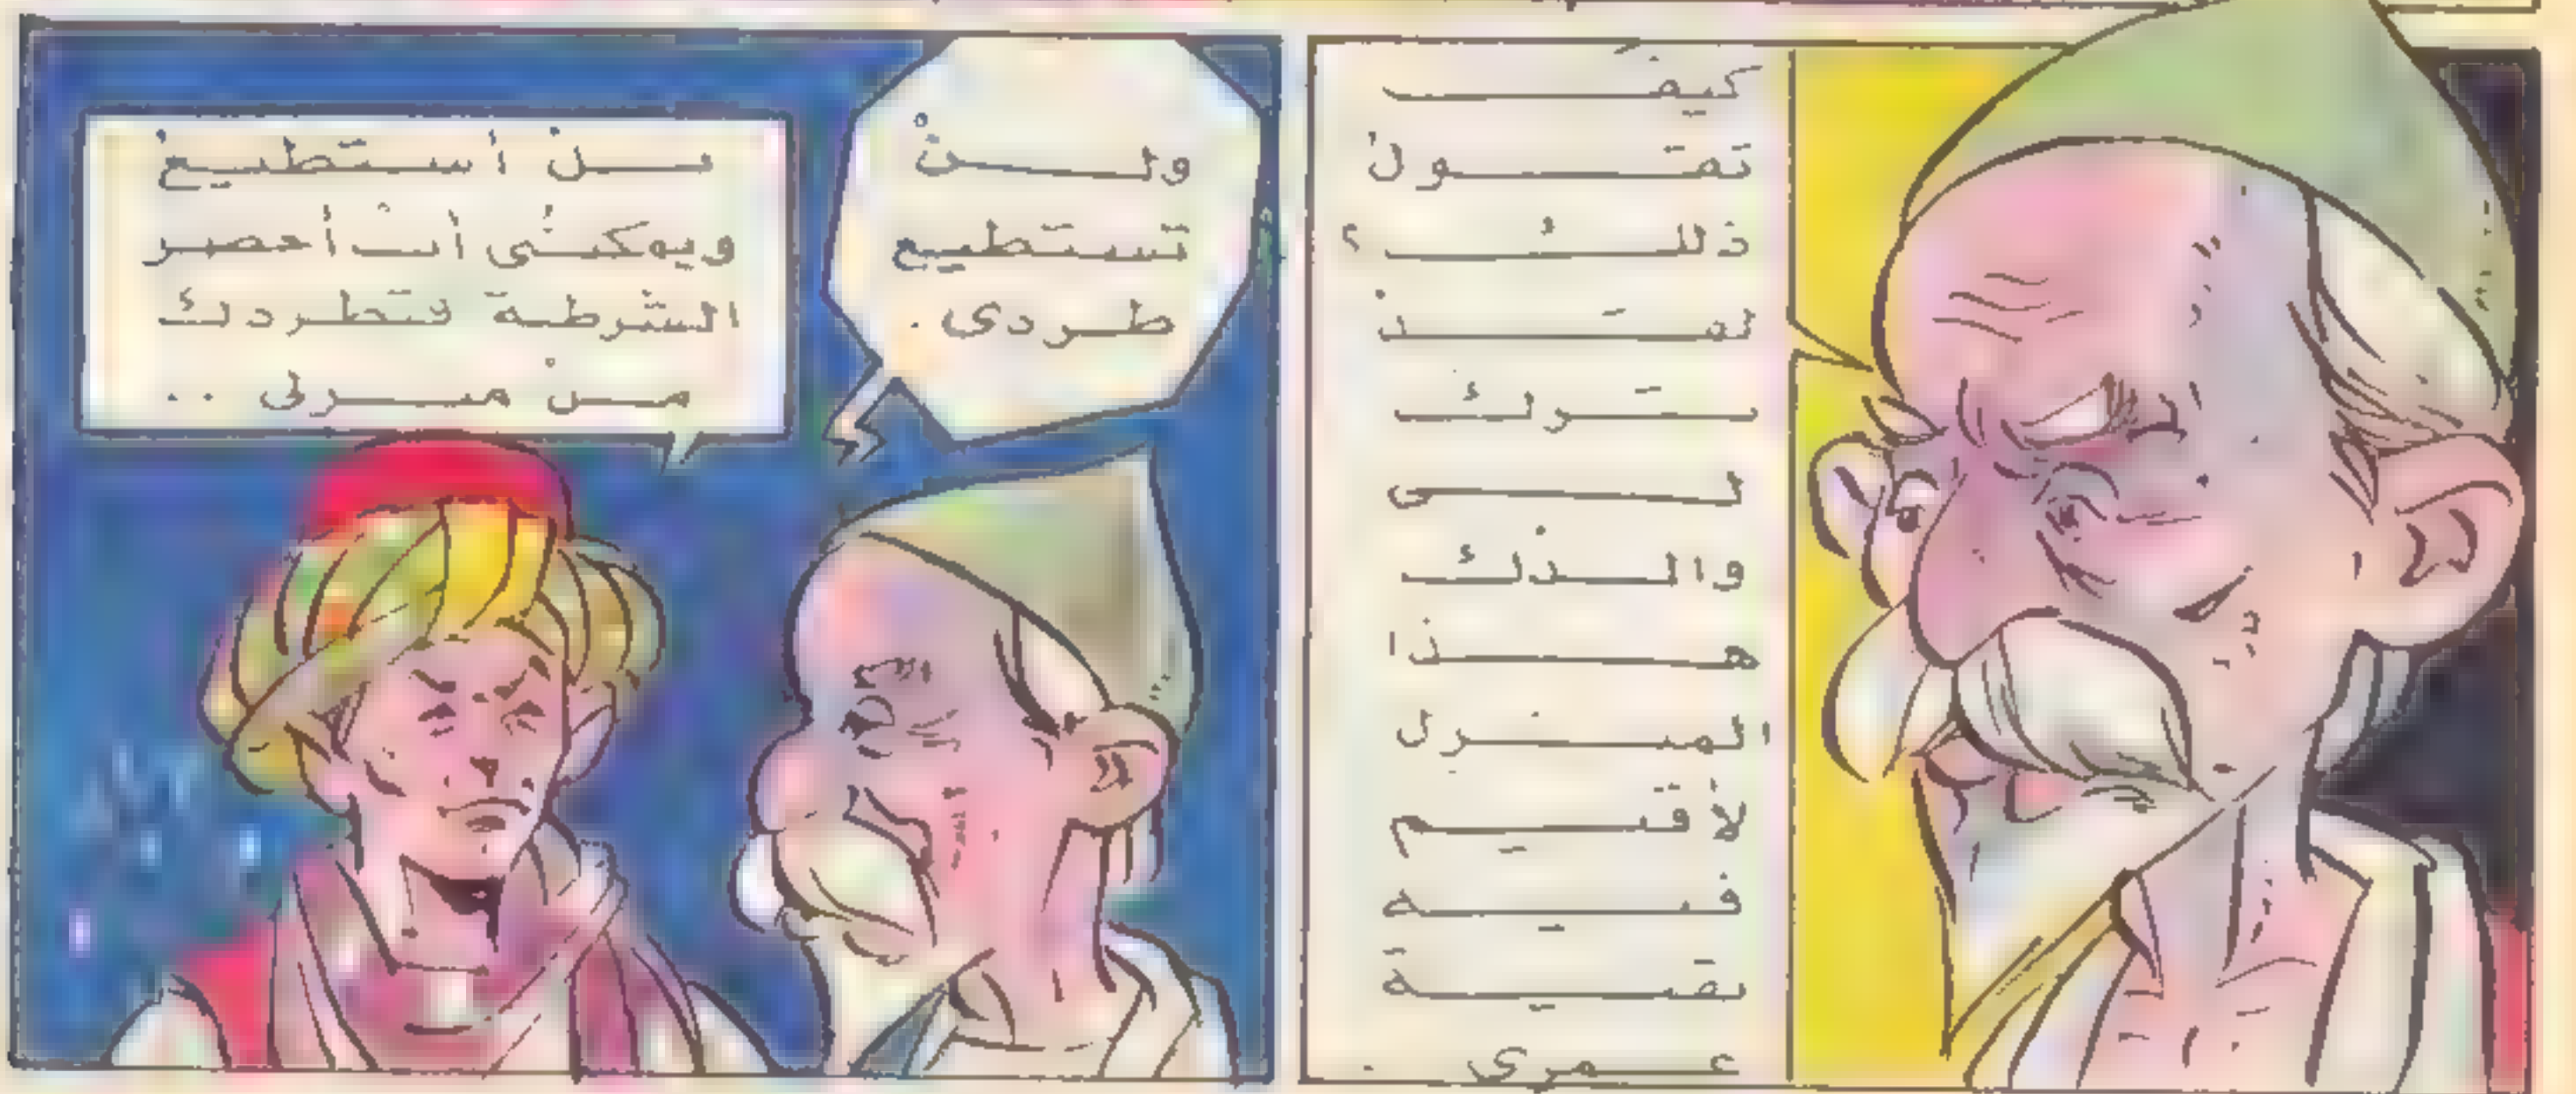 كيف
تقول
ذلك ؟
لقد
ترك
لى
والدك
هذا
المنزل
لأقيم
فيه
بقية
عمرى .
ولن
تستطيع
طردى .
بل أستطيع
ويمكننى أن أحضر
الشرطة لتطردك
من منزلى ..